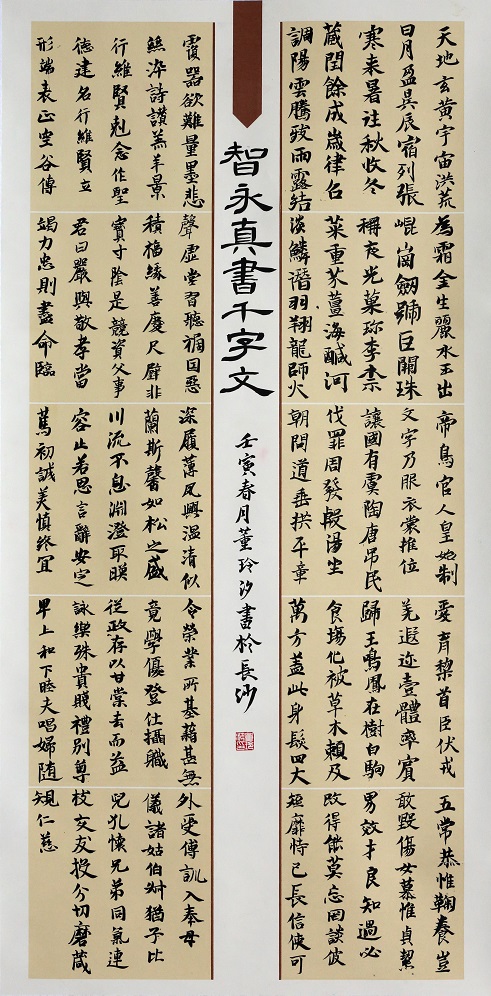 天地玄黃宇宙洪荒
日月盈昃辰宿列張
寒来暑往秋收冬
蔵閏餘成嵗律召
調陽雲騰致雨露結
為霜金生麗水玉出
崐崗劒號巨闕珠
稱夜光菓珎李柰
菜重芥薑海醎河
淡鱗潛羽翔龍師火
帝鳥官人皇始制
文字乃服衣裳推位
讓國有虞陶唐吊民
伐罪周發殷湯坐
朝問道垂拱平章
愛育黎首臣伏戎
羌遐迩壹體率賓
歸王鳴鳳在樹白駒
食場化被草木賴及
萬方蓋此身髮四大
五常恭惟鞠養豈
敢毀傷女慕惟貞絜
男效才良知過必
改得能莫忘罔談彼
短靡恃己長信使可
智永真書千字文
壬寅春月董玲汐書於長沙
覆器欲難量墨悲
絲淬詩讃羔羊景
行維賢剋念作聖
德建名行維賢立
形端表正空谷傳
聲虛堂習聽禍因惡
積福緣善慶尺璧非
寶寸陰是競資父事
君曰嚴與敬孝當
竭力忠則盡命臨
深履薄夙興温清似
蘭斯馨如松之盛
川流不息淵澄取暎
容止若思言辭安定
篤初誠美慎終宜
令榮業所基藉甚無
竟學優登仕攝職
從政存以甘棠去而益
詠樂殊貴賤禮別尊
早上和下睦夫唱婦随
外受傅訓入奉母
儀諸姑伯叔猶子比
兒孔懷兄弟同氣連
枝交友投分切磨蔵
規仁慈